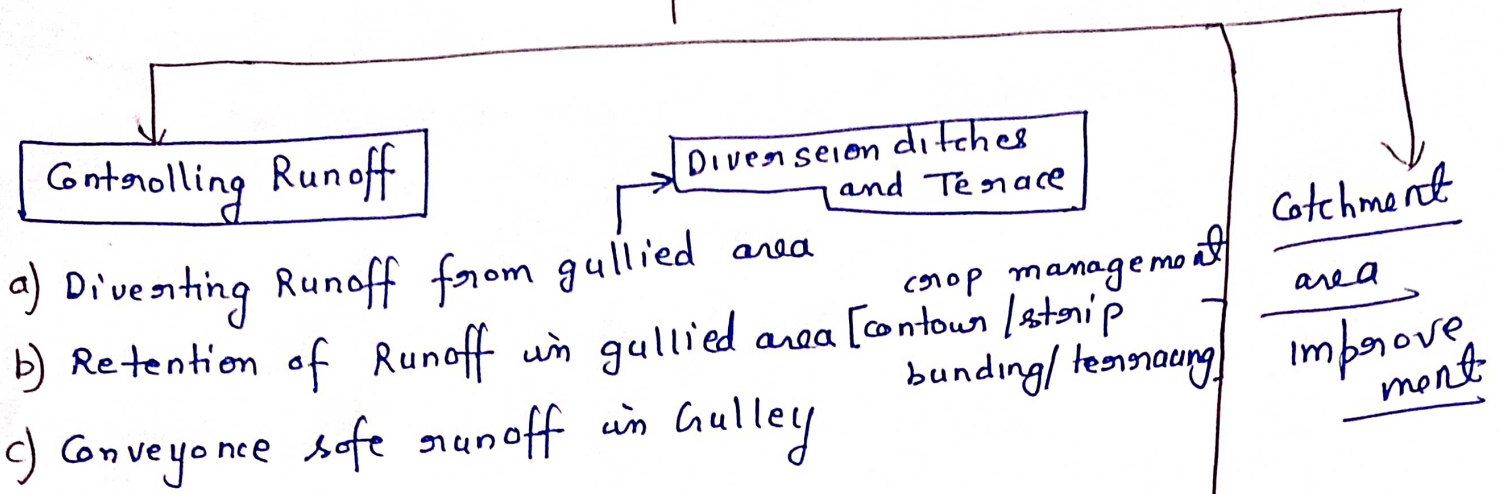 Controlling Runoff
Diverseion ditches
and Terace
a) Diverting Runoff from gullied area
b) Retention of Runoff in gullied area [contour/strip
crop management
bunding/ terraung]
c) Conveyance safe runoff in Gulley
Catchment
area
improve
ment